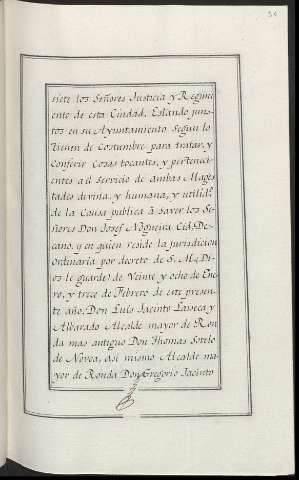 siete los Señores Justicia y Regimi
ento de esta Ciudad, Estando jun-
tos en su Ayuntamiento segun lo
tienen de Costumbre para tratar, y
Conferir Cosas tocantes, y pertenci-
entes a el Servicio de ambas Mages
tades divina, y humana, y utilidd.
de la Causa publica â Saver los Se-
ñores Don Josef Nogueira Cid, De-
cano, y en quien reside la jurisdicion
Ordinaria por decreto de S. M. (Di-
os le guarde) de Veinte y ocho de Ene
ro, y trece de Febrero de este presen-
te año, Don Luis Jacinto Lasseca y
Albarado Alcalde mayor de Ron
da mas antiguo Don Thomas Sotelo
de Novoa, asi mismo Alcalde ma
yor de Ronda, Don Gregorio Jacinto